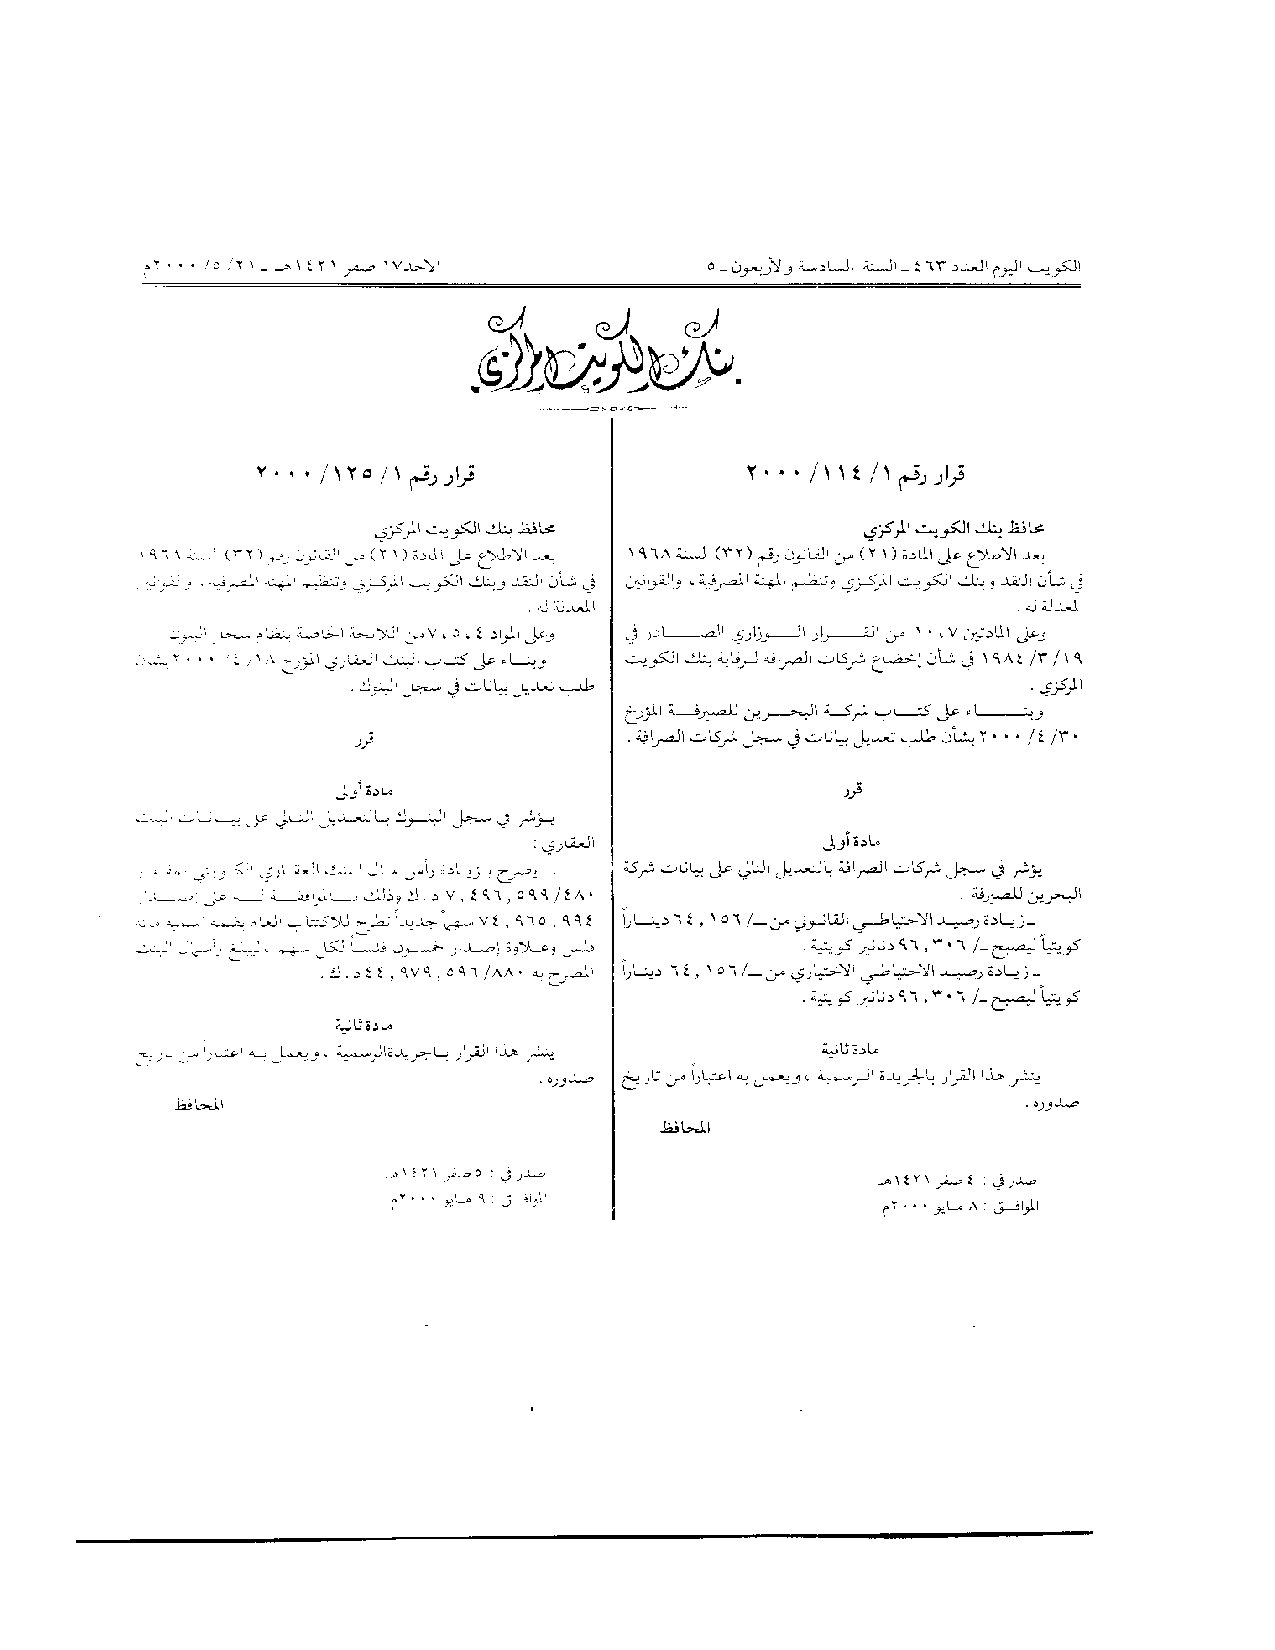 الكويت اليوم العدد ٤٦٣ ـ السنة السادسة والأربعون ـ ٥
الاحد ١٧ صفر ١٤٢١هـ ـ ٢١/ ٥/ ٢٠٠٠م
بنك الكويت المركزي
قرار رقم ١/ ١١٤/ ٢٠٠٠
محافظ بنك الكويت المركزي
بعد الاطلاع على المادة (٢١) من القانون رقم (٣٢) لسنة ١٩٦٨
في شأن النقد وبنك الكويت المركزي وتنظيم المهنة المصرفية ، والقوانين
المعدلة له .
وعلى المادتين ٧، ١٠ من القرار الوزاري الصادر في
١٩/ ٣/ ١٩٨٤ في شأن إخضاع شركات الصرافة لرقابة بنك الكويت
المركزي .
وبناء على كتاب شركة البحرين للصيرفة المؤرخ
٣٠/ ٤/ ٢٠٠٠ بشأن طلب تعديل بيانات في سجل شركات الصرافة .
قرر
مادة أولى
يؤشر في سجل شركات الصرافة بالتعديل التالي على بيانات شركة
البحرين للصيرفة .
ـ زيادة رصيد الاحتياطي القانوني من ـ/ ١٥٦ , ٦٤ ديناراً
كويتياً ليصبح ـ/ ٣٠٦ , ٩٦ دنانير كويتية .
ـ زيادة رصيد الاحتياطي الاختياري من ـ/ ١٥٦ , ٦٤ ديناراً
كويتياً ليصبح ـ/ ٣٠٦ , ٩٦ دنانير كويتية .
مادة ثانية
ينشر هذا القرار بالجريدة الرسمية ، ويعمل به اعتباراً من تاريخ
صدوره .
المحافظ
صدر في : ٤ صفر ١٤٢١هـ
الموافق : ٨ مايو ٢٠٠٠م
قرار رقم ١/ ١٢٥/ ٢٠٠٠
محافظ بنك الكويت المركزي
بعد الاطلاع على المادة (٢١) من القانون رقم (٣٢) لسنة ١٩٦٨
في شأن النقد وبنك الكويت المركزي وتنظيم المهنة المصرفية ، والقوانين
المعدلة له .
وعلى المواد ٤ ، ٥ ، ٧ من اللائحة الخاصة بنظام سجل البنوك
وبناء على كتاب البنك العقاري المؤرخ ١٨/ ٤/ ٢٠٠٠ بشأن
طلب تعديل بيانات في سجل البنوك .
قرر
مادة أولى
يؤشر في سجل البنوك بالتعديل التالي على بيانات البنك
العقاري :
يصرح بزيادة رأس مال البنك العقاري الكويتي
٤٨٠/ ٥٩٩ , ٤٩٦ , ٧ د . ك وذلك بالموافقة له على إصدار
٩٩٤ , ٩٦٥ , ٧٤ سهماً جديداً تطرح للاكتتاب العام بقيمة اسمية مائة
فلس وعلاوة إصدار خمسون فلساً لكل سهم ، ليبلغ رأسمال البنك
المصرح به ٨٨٠/ ٥٩٦ , ٩٧٩ , ٤٤ د . ك .
مادة ثانية
ينشر هذا القرار بالجريدة الرسمية ، ويعمل به اعتباراً من تاريخ
صدوره .
المحافظ
صدر في : ٥ صفر ١٤٢١هـ
الموافق : ٩ مايو ٢٠٠٠م